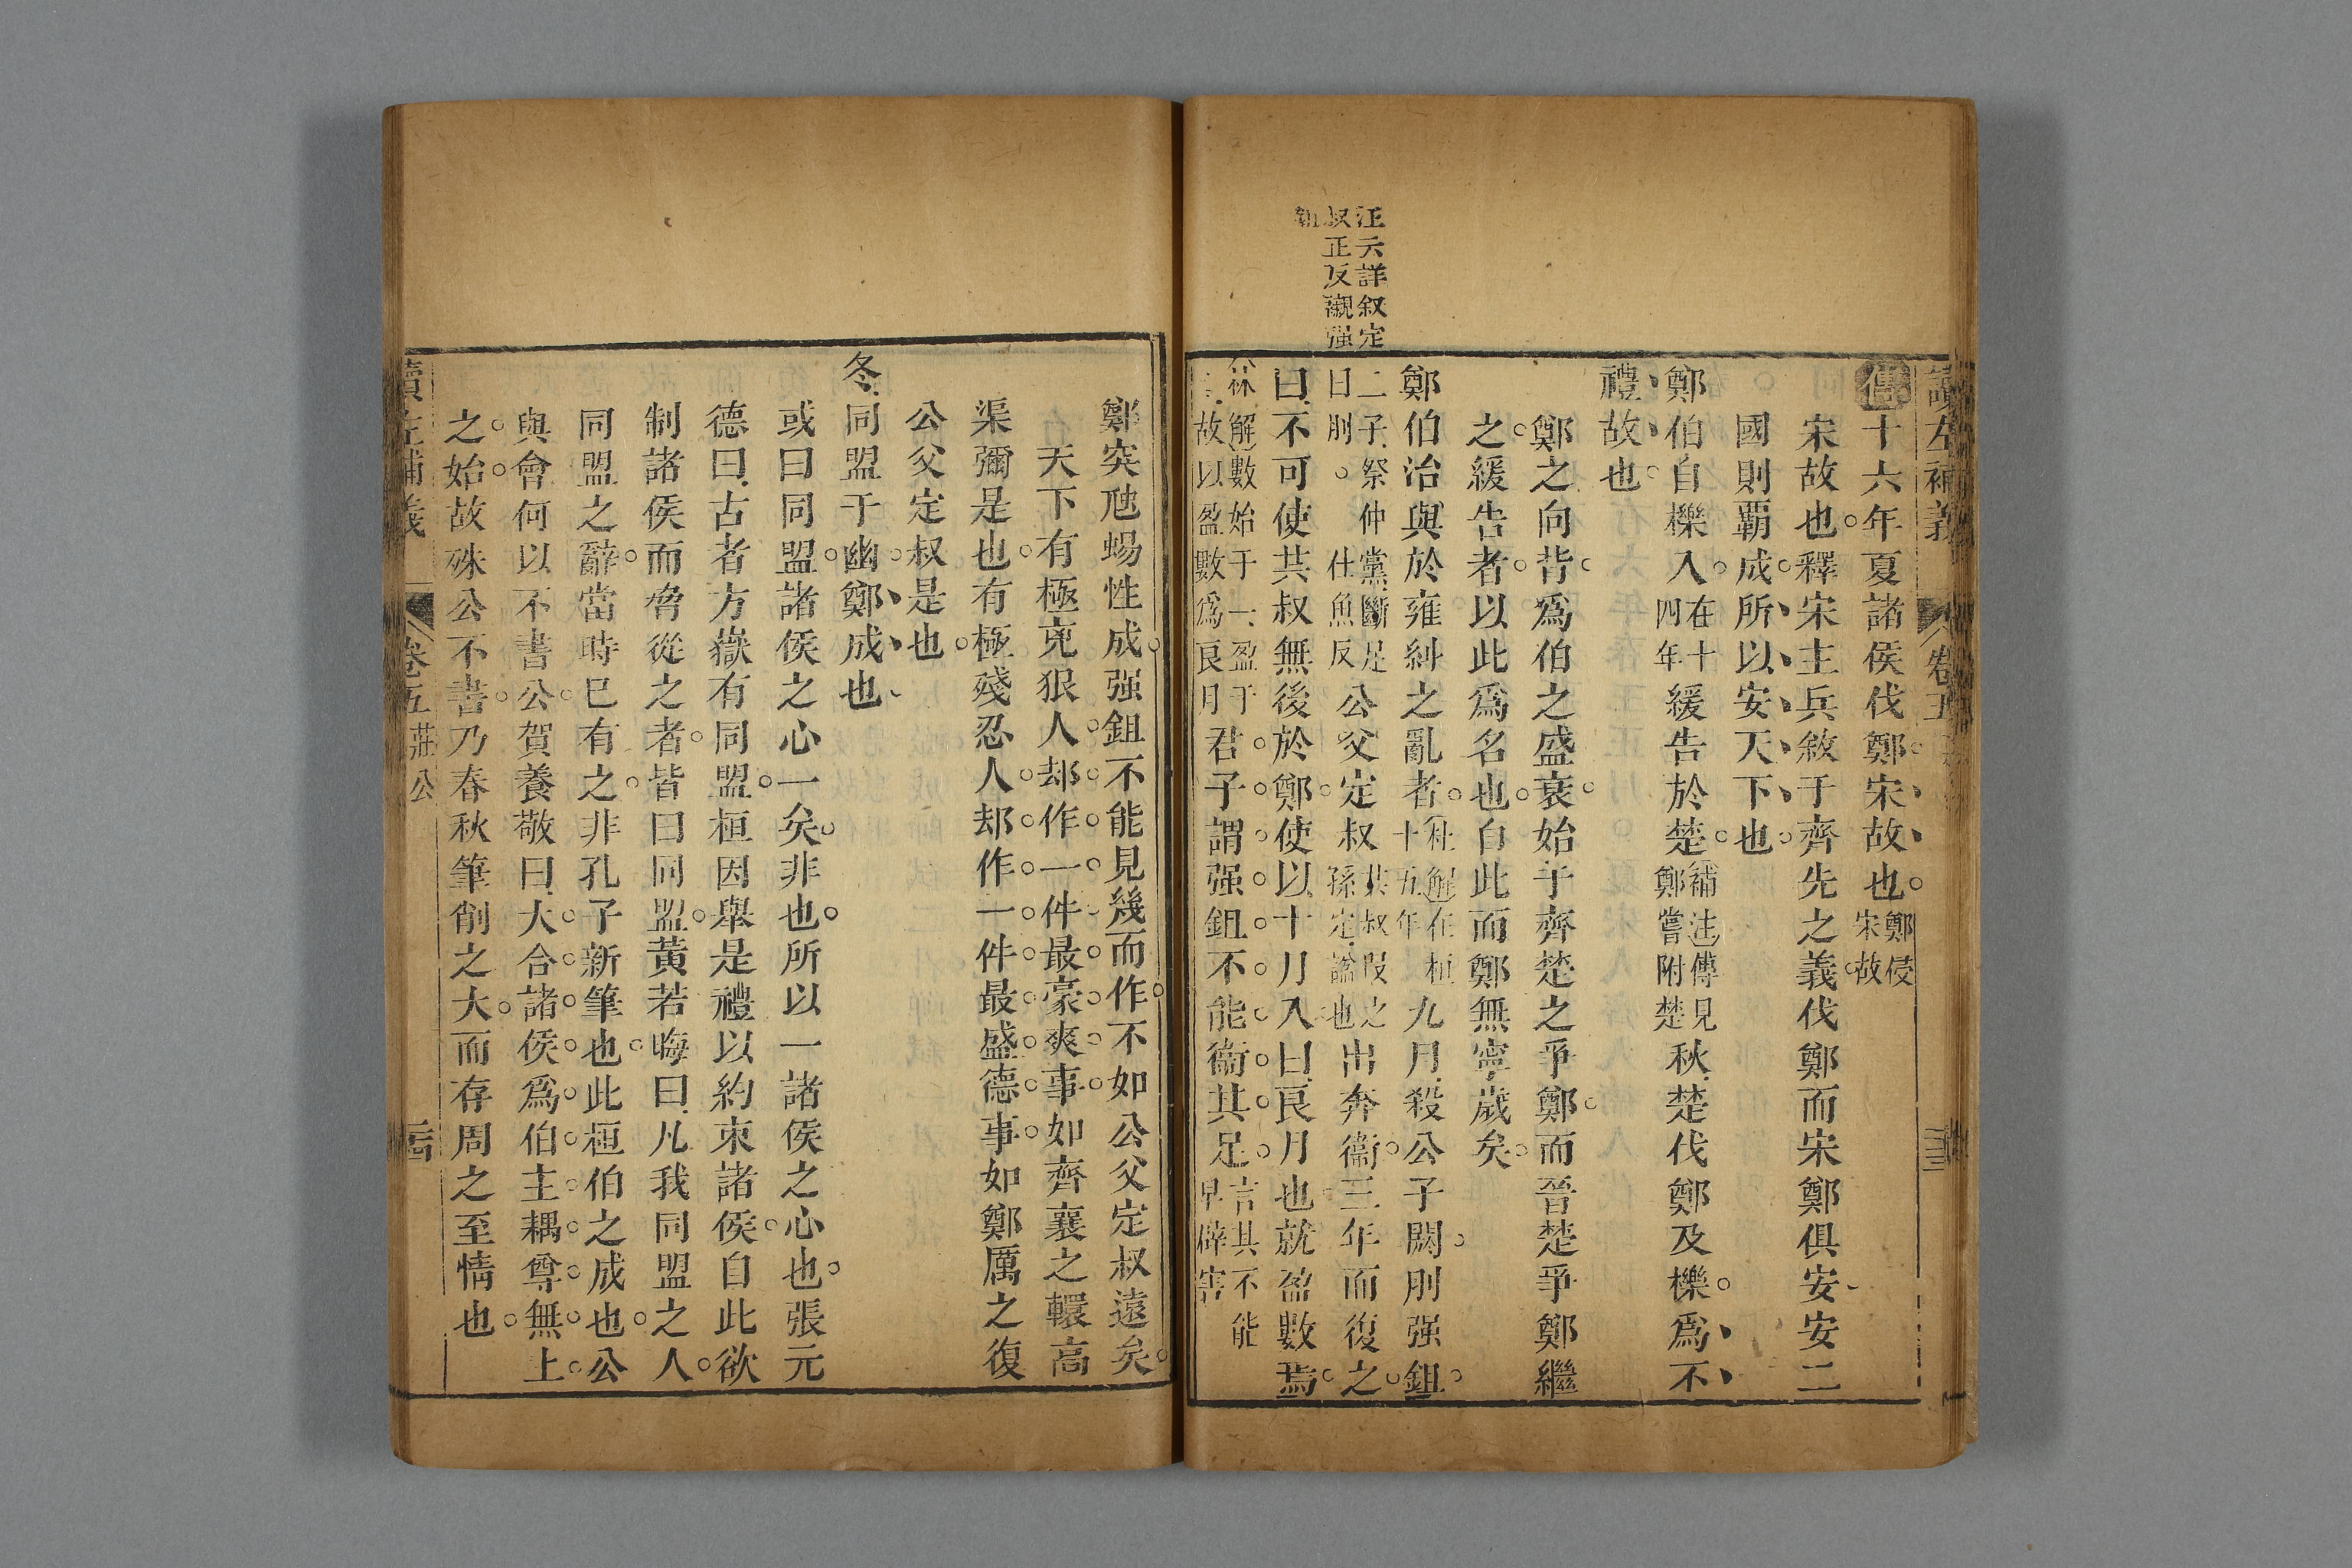 讀左補義
卷五
傳十六年夏諸侯伐鄭宋故也鄭侵宋故
宋故也釋宋主兵敘于齊先之義伐鄭而宋鄭俱安安二
國則覇成所以安天下也
鄭伯自櫟入在十四年緩告於楚補注傳見鄭嘗附楚秋楚伐鄭及櫟爲不
禮故也
鄭之向背爲伯之盛衰始于齊楚之爭鄭而晉楚爭鄭繼
之緩告者以此爲名也自此而鄭無寧歲矣
鄭伯治與於雍糾之亂者杜解在桓十五年九月殺公子閼刖强鉏
二子祭仲黨斷足曰刖仕魚反公父定叔共叔叚之孫定諡也出奔衞三年而復之
曰不可使共叔無後於鄭使以十月入曰良月也就盈數焉
林解數始于一盈于十故以盈數爲良月君子謂强鉏不能衞其足言其不能早辟害
汪云詳叙定
叔正反襯强
鉏
鄭突虺蜴性成强鉏不能見幾而作不如公父定叔遠矣
天下有極兇狠人却作一件最豪爽事如齊襄之轘高
渠彌是也有極殘忍人却作一件最盛德事如鄭厲之復
公父定叔是也
冬同盟于幽鄭成也
或曰同盟諸侯之心一矣非也所以一諸侯之心也張元
德曰古者方嶽有同盟桓因舉是禮以約束諸侯自此欲
制諸侯而脅從之者皆曰同盟黄若晦曰凡我同盟之人
同盟之辭當時已有之非孔子新筆也此桓伯之成也公
與會何以不書公賀養敬曰大合諸侯爲伯主耦尊無上
之始故殊公不書乃春秋筆削之大而存周之至情也
讀左補義
卷五 莊公